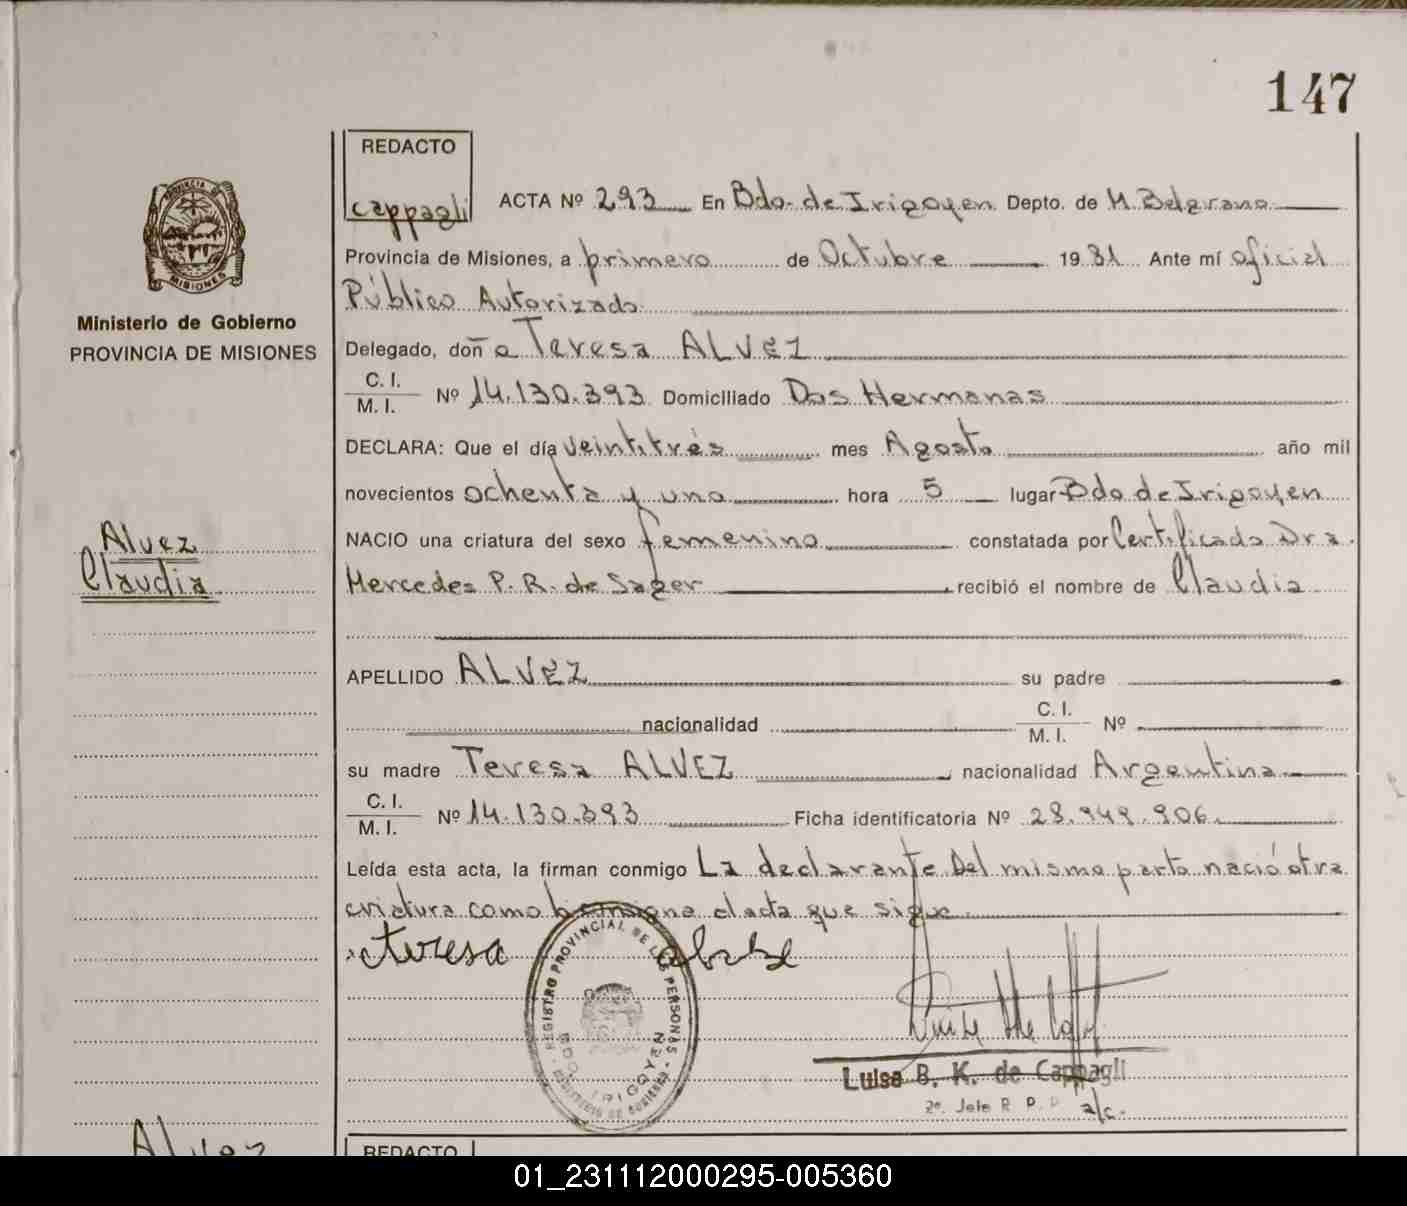 147
REDACTO
cappagli
ACTA Nº 293 En Bdo. de Irigoyen Depto. de M. Belgrano
Provincia de Misiones, a primero de Octubre 1981 Ante mí oficial
Público Autorizado
Delegado, doña Teresa ALVEZ
C. I.
M. I. Nº 14.130.393 Domiciliado Dos Hermanas
DECLARA: Que el día veintitrés mes Agosto año mil
novecientos ochenta y uno hora 5 lugar Bdo de Irigoyen
NACIO una criatura del sexo femenino constatada por Certificado Dra.
Mercedes P. R. de Sager recibió el nombre de Claudia
APELLIDO ALVEZ su padre
nacionalidad C. I.
M. I. Nº
su madre Teresa ALVEZ nacionalidad Argentina
C. I.
M. I. Nº 14.130.393 Ficha identificatoria Nº 28.949.906
Leída esta acta, la firman conmigo La declarante. Del mismo parto nació otra
criatura como consigna el acta que sigue.
teresa
REGISTRO PROVINCIAL DE LAS PERSONAS
BDO. IRIGOYEN
MINISTERIO DE GOBIERNO
Luisa B. K. de Cappagli
2º. Jefe R. P. P. a/c.
PROVINCIA DE
MISIONES
Ministerio de Gobierno
PROVINCIA DE MISIONES
Alvez
Claudia
Alvez
REDACTO
01_231112000295-005360